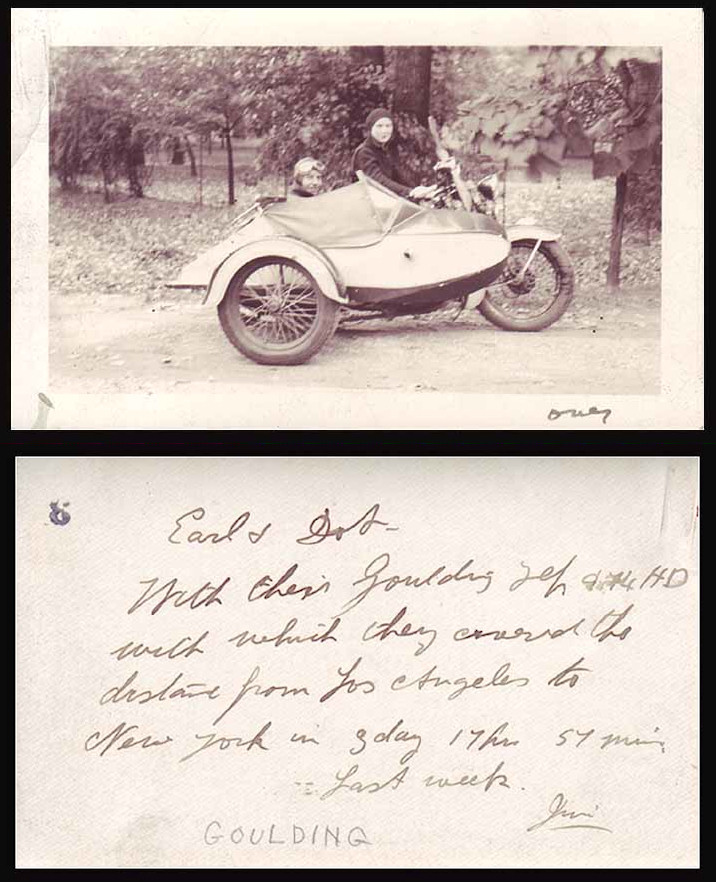 over
8
Earl & Dot-
With their Goulding HD
with which they covered the
distance from Los Angeles to
New York in 3day 17hr 57 min.
Last week.
Jim
GOULDING